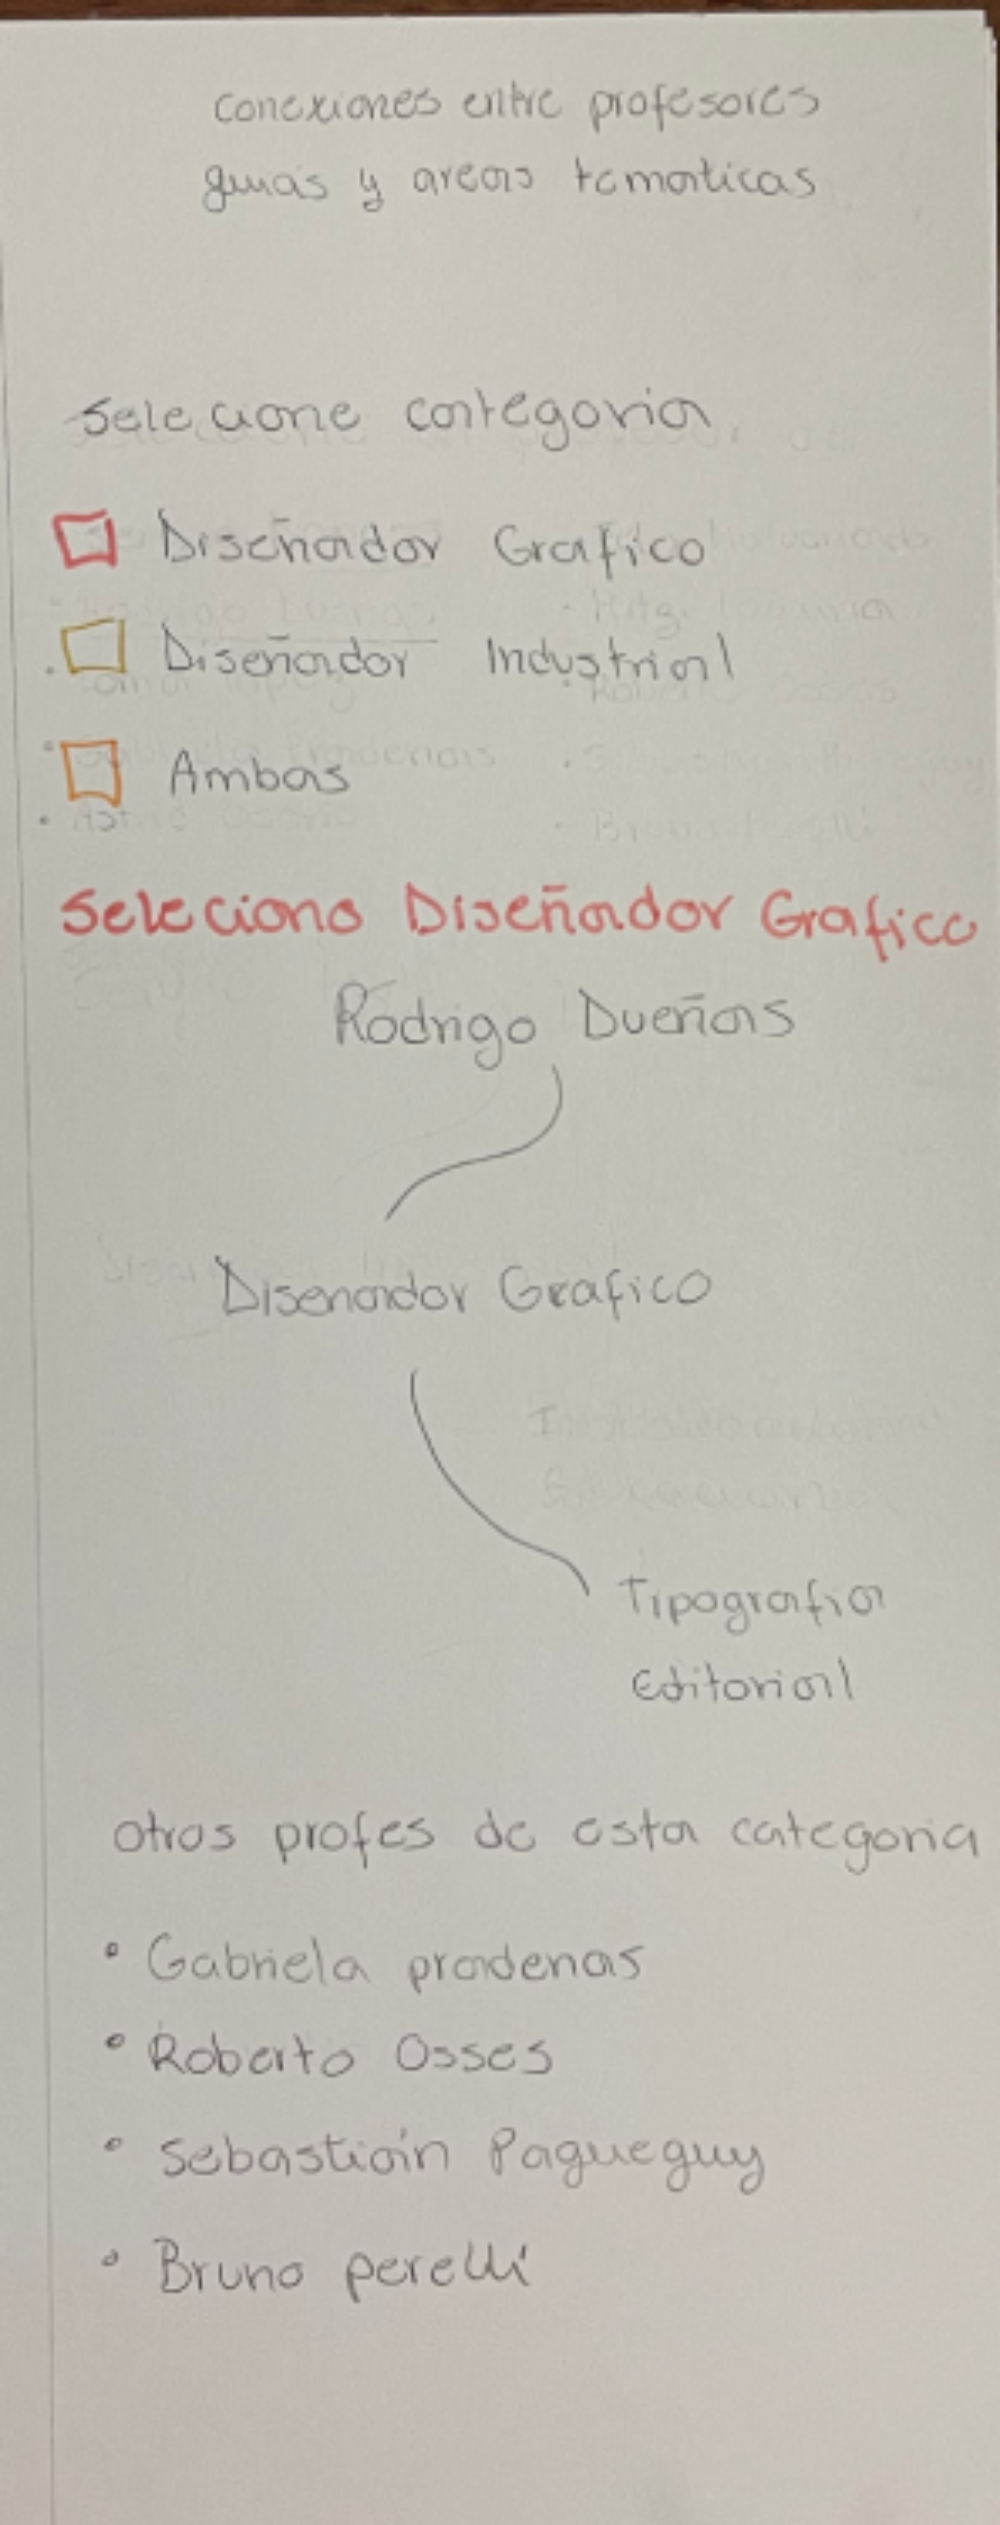 conexiones entre profesores
guias y areas tematicas
selecione categoria
Diseñador Grafico
Diseñador Industrial
Ambas
seleciono Diseñador Grafico
Rodrigo Dueñas
Disenador Grafico
Tipografia
Editorial
otros profes de esta categoria
• Gabriela pradenas
• Roberto Osses
• Sebastián Pagueguy
• Bruno perelli